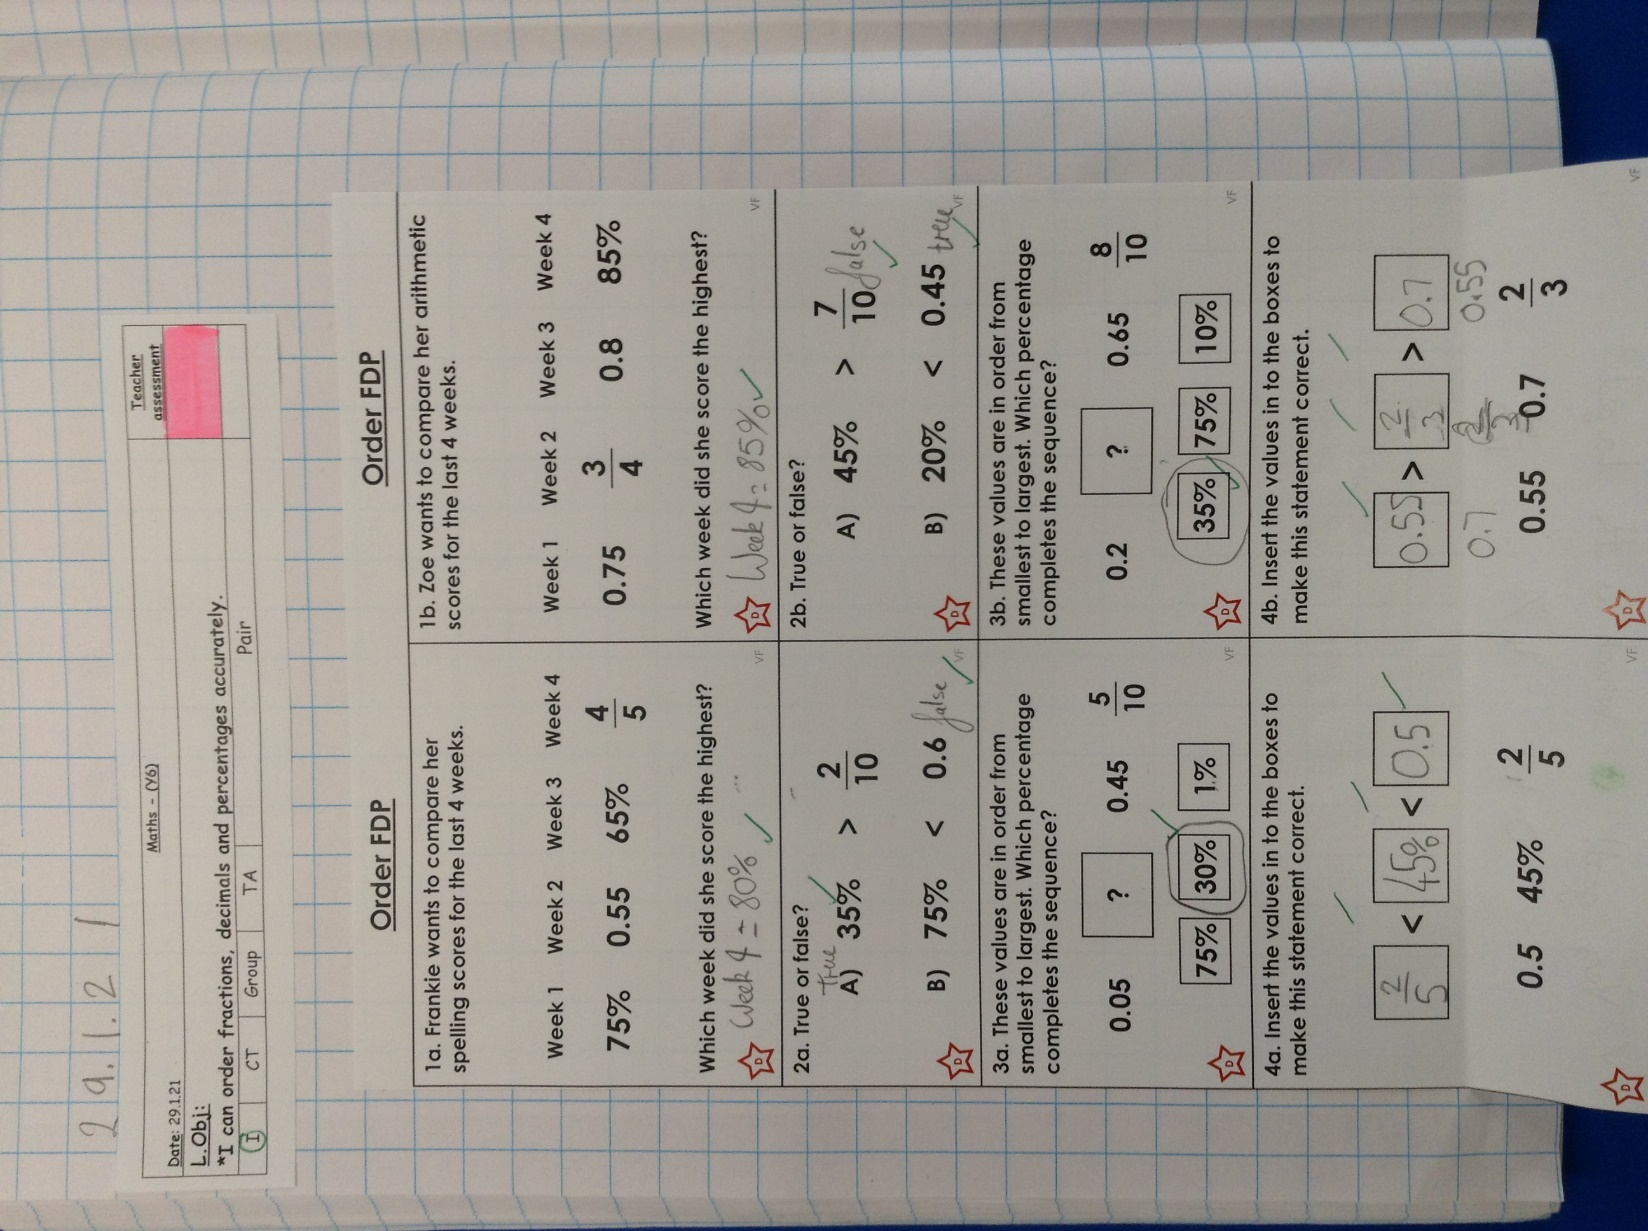 29.1.21
Maths - (Y6)
Teacher assessment
Date: 29.1.21
L.Obj:
*I can order fractions, decimals and percentages accurately.
I CT Group TA Pair
Order FDP
1a. Frankie wants to compare her
spelling scores for the last 4 weeks.
Week 1 Week 2 Week 3 Week 4
75% 0.55 65% 4/5
Which week did she score the highest?
Week 4 = 80%
D
VF
2a. True or false?
True
A) 35% > 2/10
B) 75% < 0.6 false
D
VF
3a. These values are in order from
smallest to largest. Which percentage
completes the sequence?
0.05 ? 0.45 5/10
75% 30% 1%
D
VF
4a. Insert the values in to the boxes to
make this statement correct.
2/5 < 45% < 0.5
0.5 45% 2/5
D
VF
Order FDP
1b. Zoe wants to compare her arithmetic
scores for the last 4 weeks.
Week 1 Week 2 Week 3 Week 4
0.75 3/4 0.8 85%
Which week did she score the highest?
Week 4 = 85%
D
VF
2b. True or false?
A) 45% > 7/10 false
B) 20% < 0.45 true
D
VF
3b. These values are in order from
smallest to largest. Which percentage
completes the sequence?
0.2 ? 0.65 8/10
35% 75% 10%
D
VF
4b. Insert the values in to the boxes to
make this statement correct.
0.55 > 2/3 > 0.7
0.7 0.55
0.55 0.7 2/3
D
VF